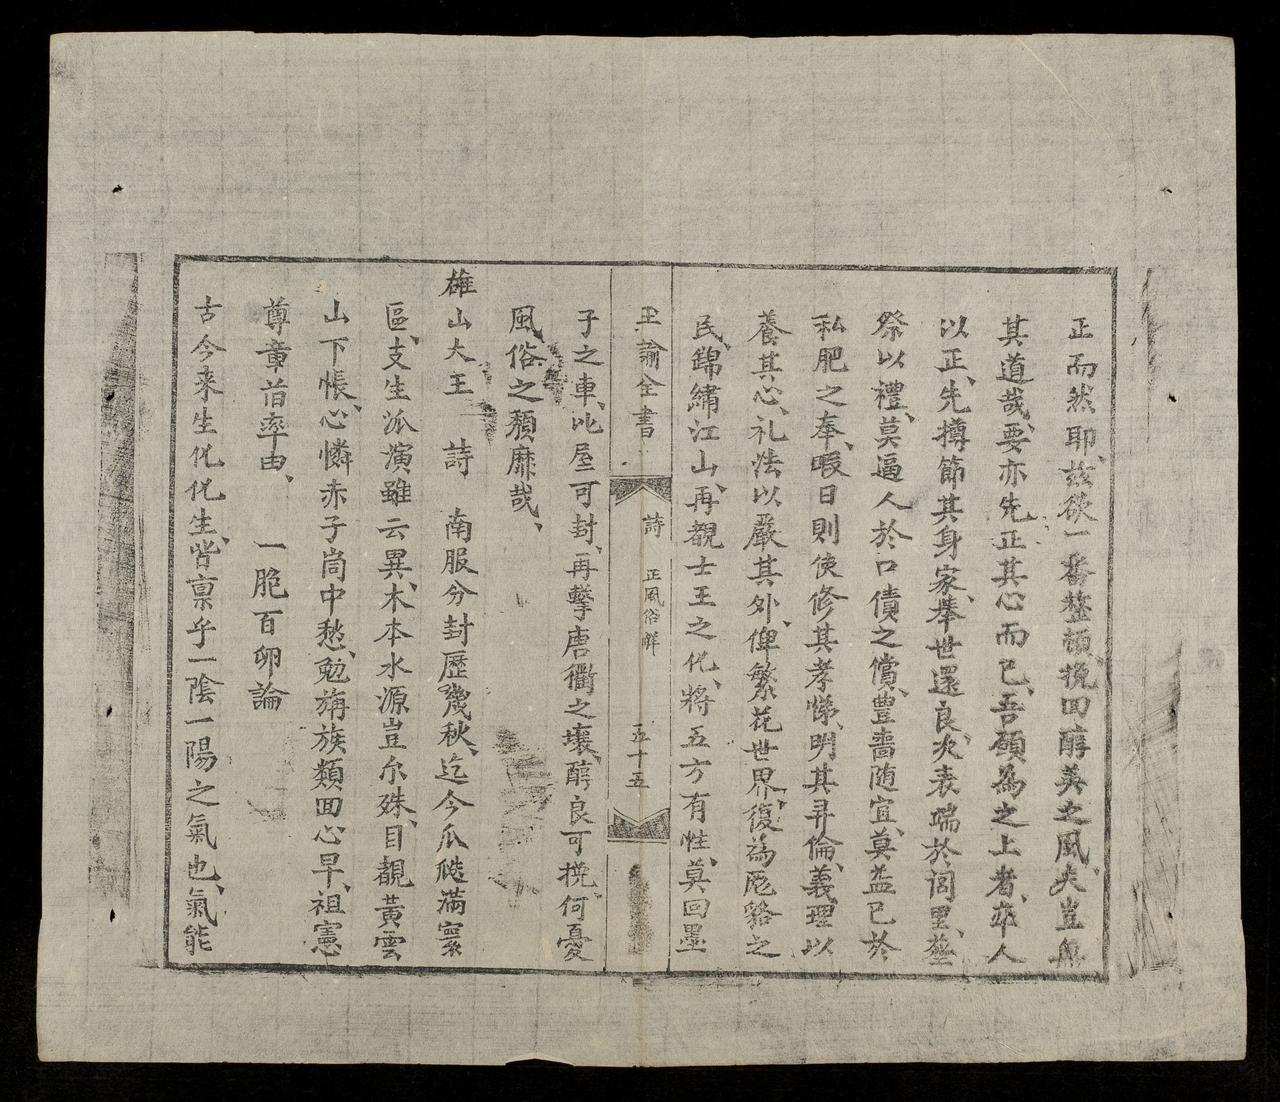 正而然耶、茲欲一番整頓、挽回醇美之風、夫豈無
其道哉、要亦先正其心而已、吾願為之上者、率人
以正、先撙節其身家、舉世還良、次表端於閭里、塟
祭以禮、莫逼人於口債之償、豊嗇随宜、莫益已於
私肥之奉、暇日則使修其孝悌、明其尋倫、義理以
養其心、礼法以嚴其外、俾繁花世界、復為厖谿之
民、錦繡江山、再覩士王之化、將五方有性、莫回墨
王諭全書 詩 正風俗解 五十五
子之車、比屋可封、再擊唐衢之壤、醇良可挽、何憂
風俗之頹靡哉、
雄山大王 詩 南服分封歷幾秋、迄今瓜瓞滿寰
區、支生派演雖云異、木本水源豈尔殊、目覩黃雲
山下帳、心憐赤子峝中愁、勉旃族類回心早、祖憲
尊章旧率由、 一胞百卵論
古今来生化化生、皆禀乎一陰一陽之氣也、氣能